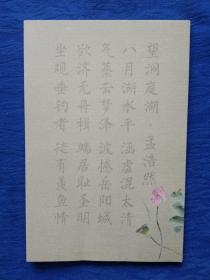 望洞庭湖·孟浩然
八月湖水平 涵虚混太清
气蒸云梦泽 波撼岳阳城
欲济无舟楫 端居耻圣明
坐观垂钓者 徒有羡鱼情